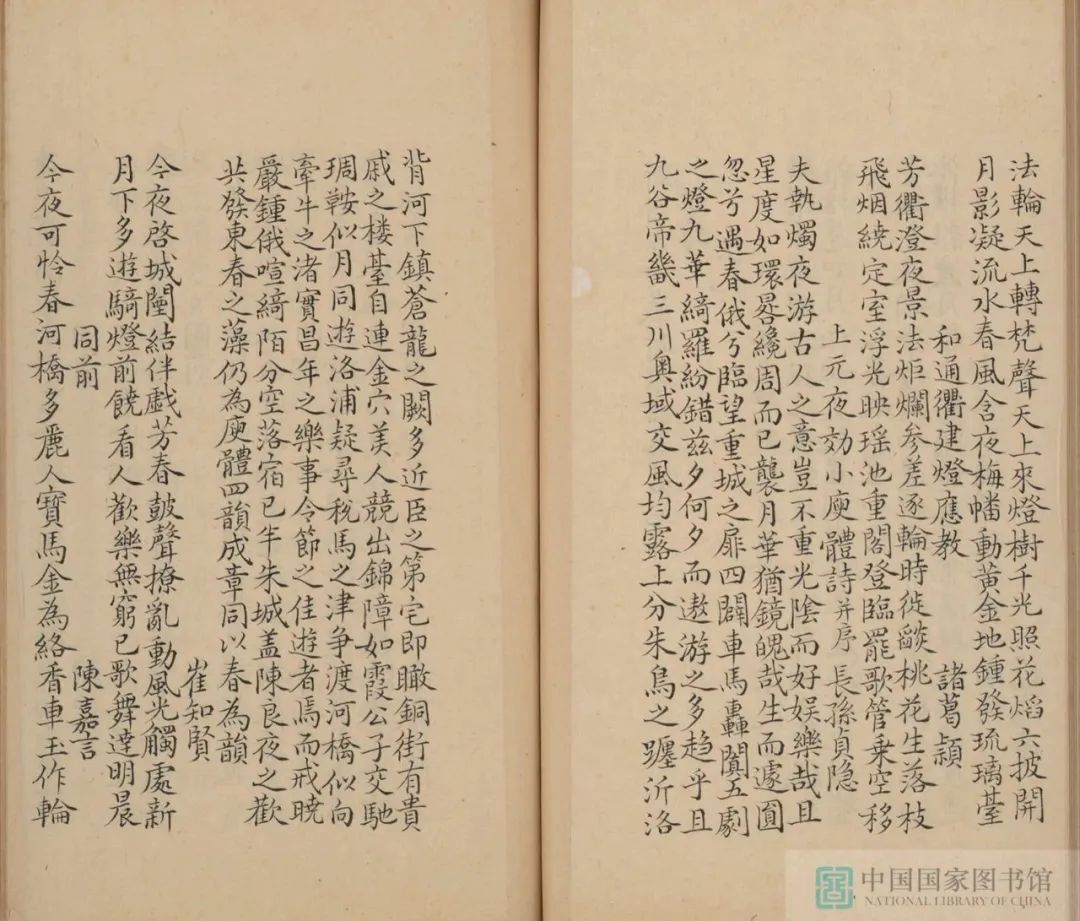 法輪天上轉梵聲天上來燈樹千光照花焰六披開
月影凝流水春風含夜梅幡動黃金地鍾發琉璃臺
和通衢建燈應教 諸葛頴
芳衢澄夜景法炬爛參差逐輪時徙燄桃花生落枝
飛烟繞定室浮光映瑶池重閣登臨罷歌管乗空移
上元夜効小庾體詩并序 長孫貞隐
夫執燭夜游古人之意豈不重光陰而好娱樂哉且
星度如環晷纔周而已襲月華猶鏡魄哉生而遽圓
忽兮遇春俄兮臨望重城之扉四闢車馬轟闐五劇
之燈九華綺羅紛錯兹夕何夕而遨游之多趋乎且
九谷帝畿三川奥域交風均露上分朱鳥之躔沂洛
背河下鎮蒼龍之闕多近臣之第宅即瞰銅街有貴
戚之楼臺自連金穴美人競出錦障如霞公子交馳
琱鞍似月同遊洛浦疑尋税馬之津争渡河橋似向
牽牛之渚實昌年之樂事今節之佳遊者焉而戒曉
嚴鍾俄喧綺陌分空落宿已半朱城盖陳良夜之歡
共發東春之藻仍為庾體四韻成章同以春為韻
崔知賢
今夜啓城闉結伴戲芳春皷聲撩亂動風光觸處新
月下多遊騎燈前饒看人歡樂無窮已歌舞達明晨
同前 陳嘉言
今夜可怜春河橋多麗人寳馬金為絡香車玉作輪
中国国家图书馆
NATIONAL LIBRARY OF CHINA